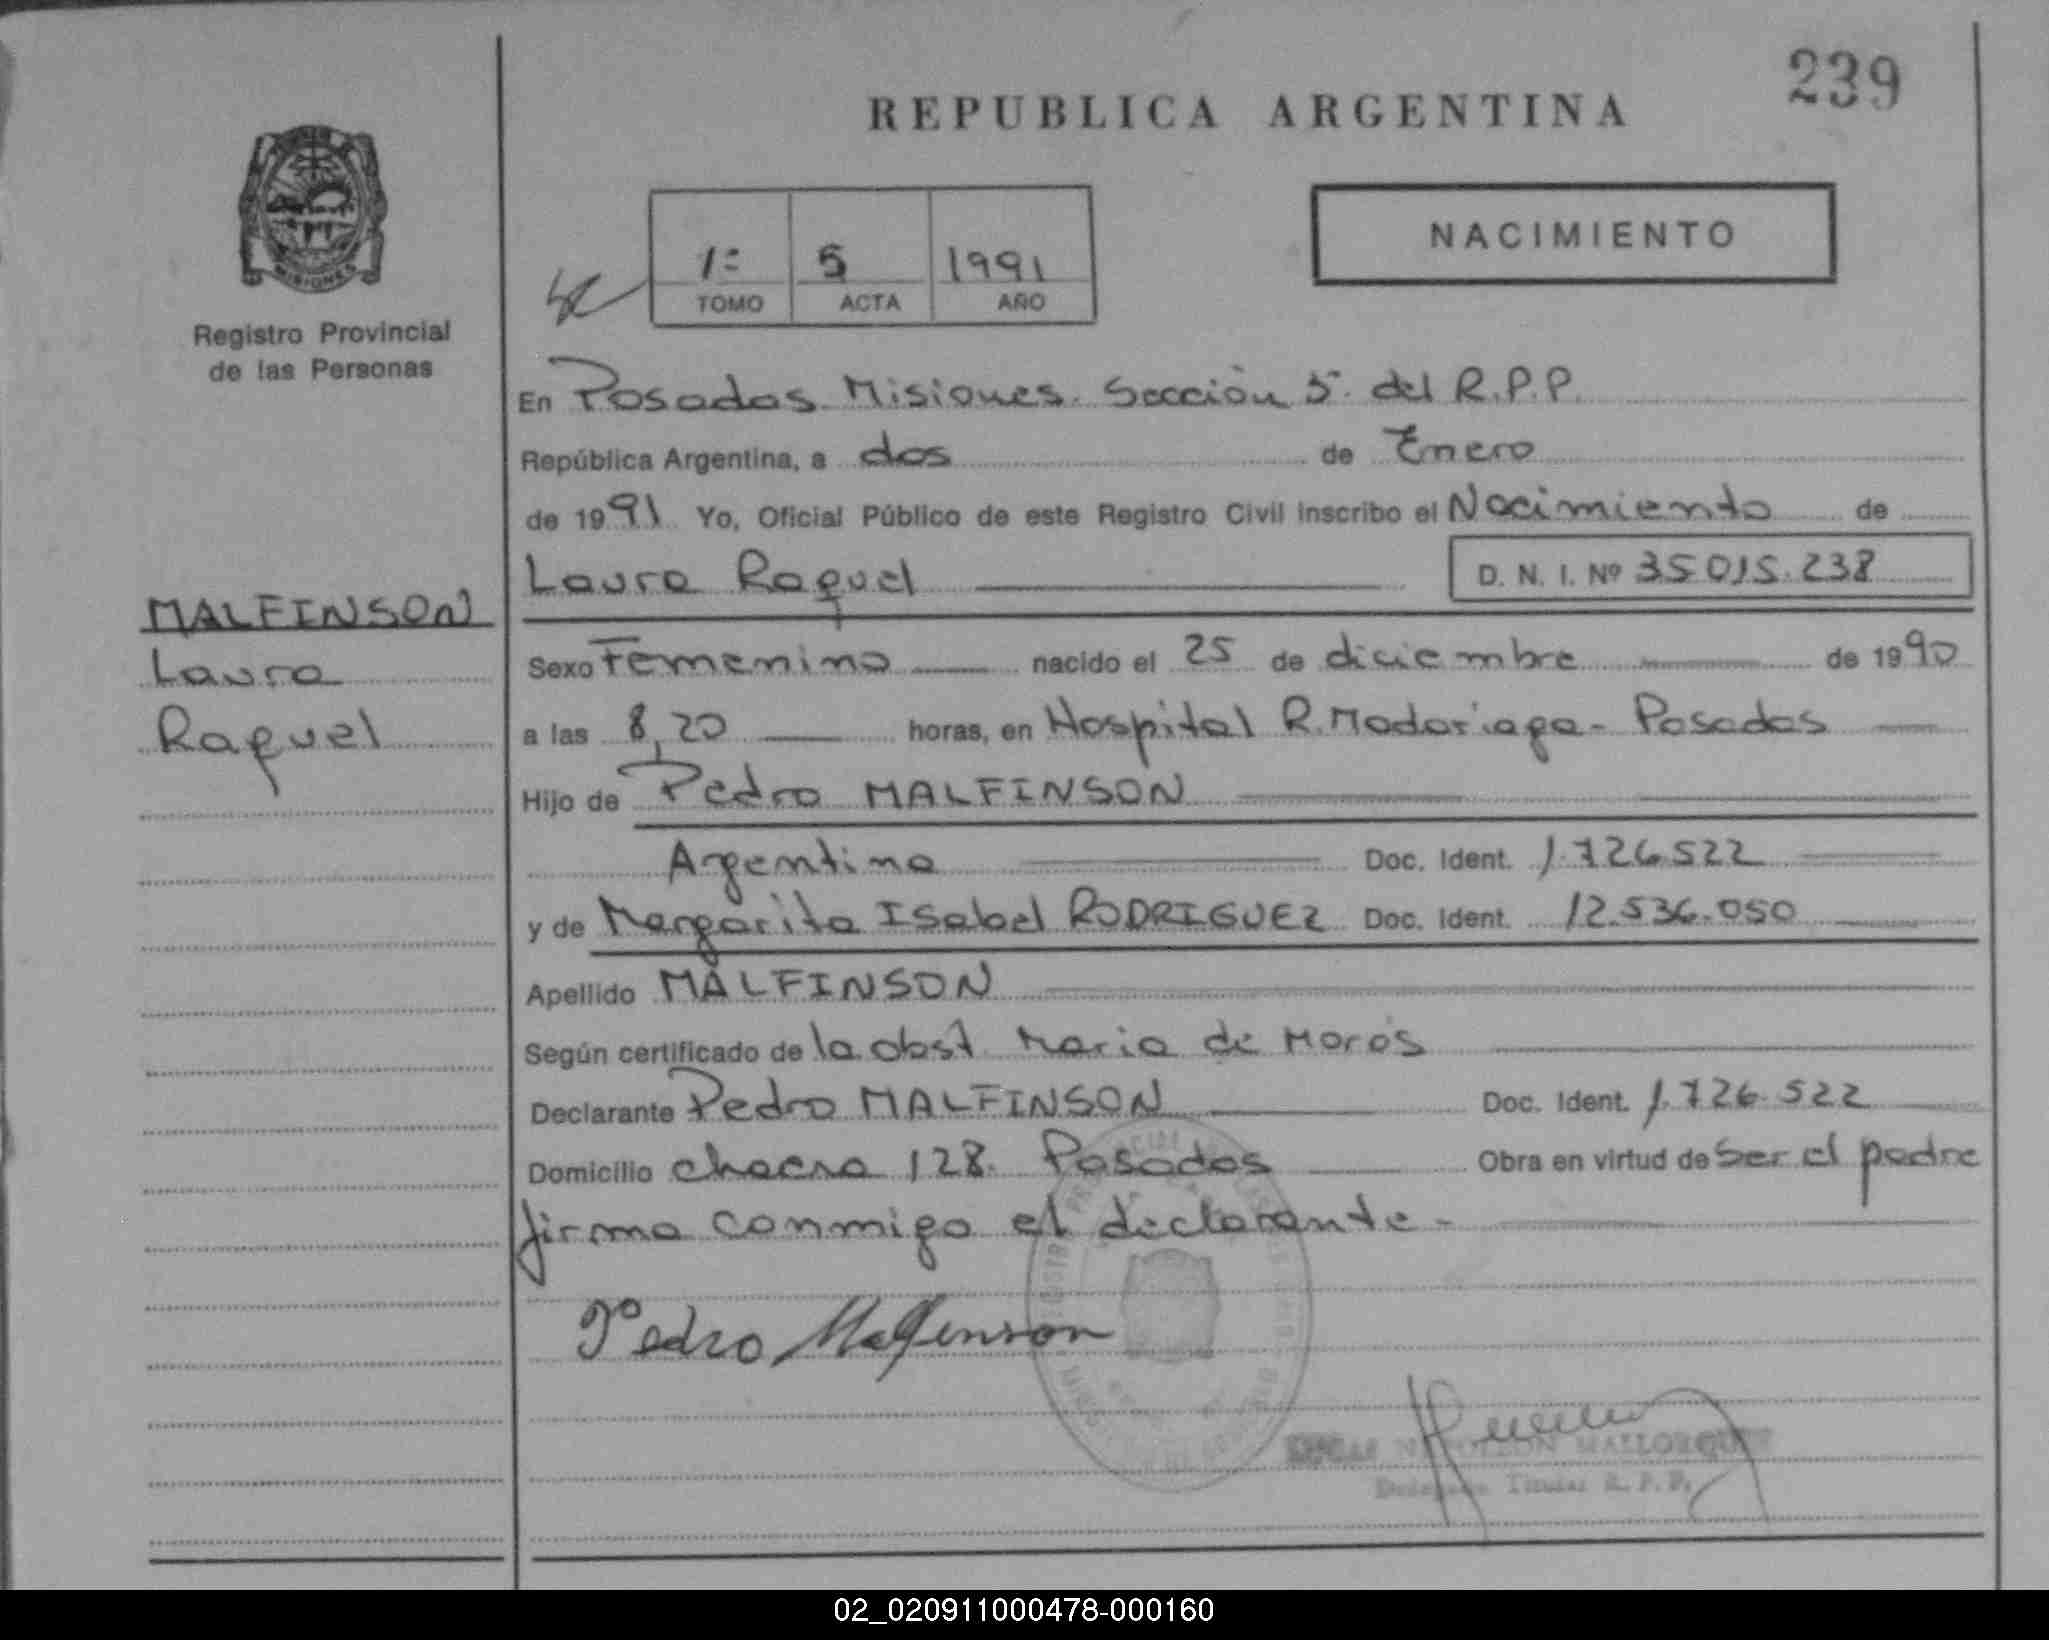 239
REPUBLICA ARGENTINA
MISIONES
Registro Provincial
de las Personas
1º 5 1991
TOMO ACTA AÑO
NACIMIENTO
MALFINSON
Laura
Raquel
En Posadas Misiones Sección 5ª del R.P.P.
República Argentina, a dos de Enero
de 1991 Yo, Oficial Público de este Registro Civil inscribo el Nacimiento de
Laura Raquel D. N. I. Nº 35.015.238
Sexo Femenino nacido el 25 de diciembre de 1990
a las 8,20 horas, en Hospital R. Madariaga - Posadas
Hijo de Pedro MALFINSON
Argentino Doc. Ident. 1.726.522
y de Margarita Isabel RODRIGUEZ Doc. Ident. 12.536.050
Apellido MALFINSON
Según certificado de la obst Maria de Moros
Declarante Pedro MALFINSON Doc. Ident. 1.726.522
Domicilio chacra 128. Posadas Obra en virtud de ser el padre
firma conmigo el declarante -
Pedro Malfinson
NAPOLEON MALLORQUIN
Titular R. P. P.
02_020911000478-000160